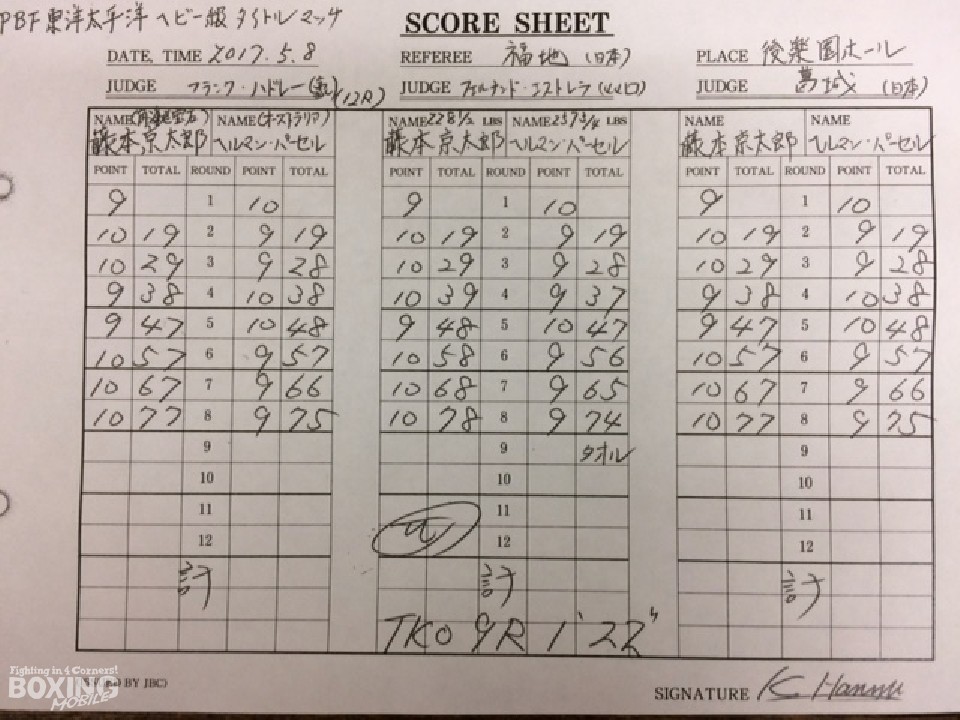 PBF東洋太平洋 ヘビー級 タイトルマッチ
SCORE SHEET
DATE, TIME 2017.5.8 REFEREE 福地 (日本) PLACE 後楽園ホール
JUDGE フランク・ハドレー (12R) JUDGE フェルナンド・エストレラ JUDGE 葛城 (日本)
NAME NAME (オーストラリア) NAME 228 1/2 LBS NAME 257 3/4 LBS NAME NAME
藤本京太郎 ヘルマン・パーセル 藤本京太郎 ヘルマン・パーセル 藤本京太郎 ヘルマン・パーセル
POINT TOTAL ROUND POINT TOTAL POINT TOTAL ROUND POINT TOTAL POINT TOTAL ROUND POINT TOTAL
9 1 10 9 1 10 9 1 10
10 19 2 9 19 10 19 2 9 19 10 19 2 9 19
10 29 3 9 28 10 29 3 9 28 10 29 3 9 28
9 38 4 10 38 10 39 4 9 37 9 38 4 10 38
9 47 5 10 48 9 48 5 10 47 9 47 5 10 48
10 57 6 9 57 10 58 6 9 56 10 57 6 9 57
10 67 7 9 66 10 68 7 9 65 10 67 7 9 66
10 77 8 9 75 10 78 8 9 74 10 77 8 9 75
9 9 タオル 9
10 10 10
11 11 11
12 12 12
計 計 計
TKO 9R 1'22"
Fighting in 4 Corners!
BOXING
MOBILE
BY JBC)
SIGNATURE K Hannu